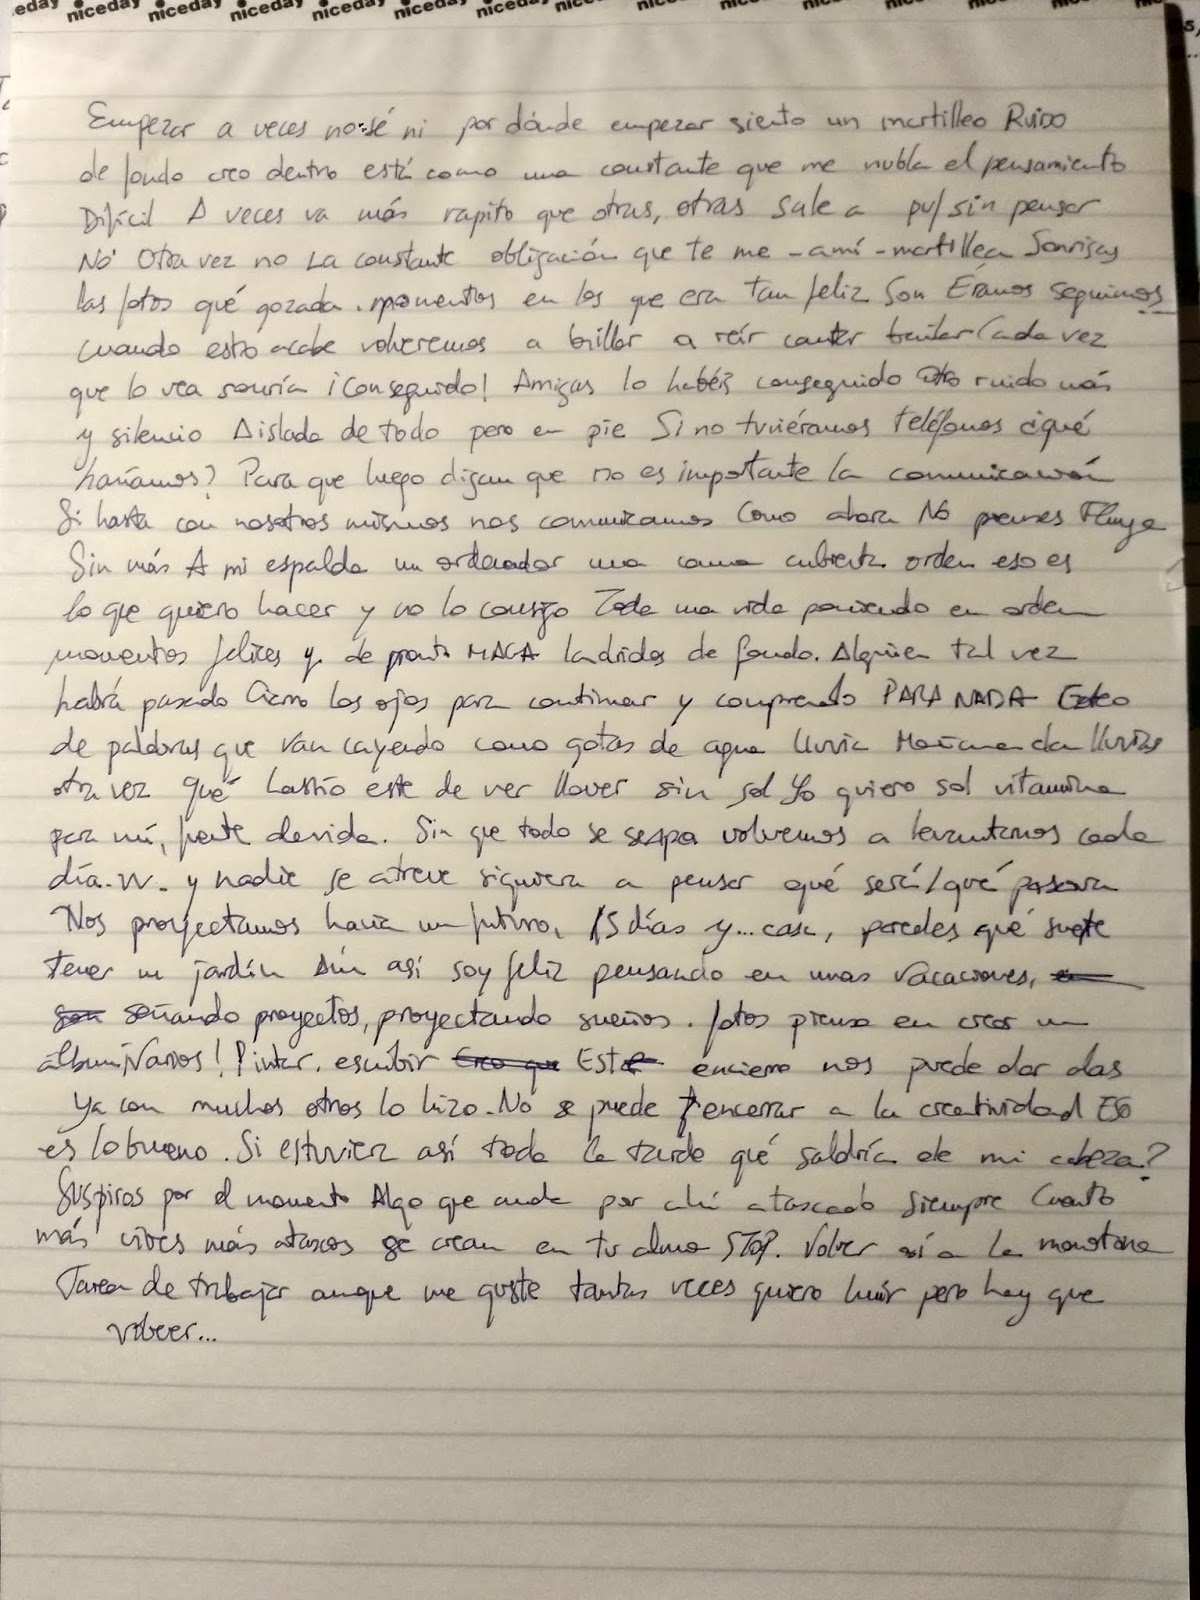 niceday niceday niceday niceday niceday niceday
Empezar a veces no sé ni por dónde empezar siento un martilleo Ruido
de fondo creo dentro está como una constante que me nubla el pensamiento
Difícil A veces va más rapito que otras, otras sale a pu/sin pensar
No Otra vez no La constante obligación que te me - a mí - martillea Sonrisas
las fotos qué gozada. momentos en los que era tan feliz Son Éramos seguimos
cuando esto acabe volveremos a brillar a reír cantar bailar Cada vez
que lo vea sonría ¡Conseguido! Amigas lo habéis conseguido Otro ruido más
y silencio Aislada de todo pero en pie Si no tuviéramos teléfonos ¿qué
haríamos? Para que luego digan que no es importante la comunicación
Si hasta con nosotros mismos nos comunicamos Como ahora No pienses Fluye
Sin más A mi espalda un ordenador una cama cubierta orden eso es
lo que quiero hacer y no lo consigo Toda una vida poniendo en orden
momentos felices y de pronto MAGA ladridos de fondo. Alguien tal vez
habrá pasado Cierro los ojos para continuar y comprendo PARA NADA
de palabras que van cayendo como gotas de agua lluvia Mañana dan lluvias
otra vez Qué Lastio este de ver llover sin sol Yo quiero sol vitamina
para mí, fuente de vida. Sin que todo se sepa volvemos a levantarnos cada
día. W. y nadie se atreve siquiera a pensar qué será/qué pasará
Nos proyectamos hacia un futuro, 15 días y... casa, paredes qué suerte
tener un jardín Aún así soy feliz pensando en unas vacaciones,
soñando proyectos, proyectando sueños. fotos pienso en crear un
álbum ¡Varios! Pintar, escribir Este encierro nos puede dar alas
Ya con muchos otros lo hizo. No se puede encerrar a la creatividad ESO
es lo bueno. Si estuviera así toda la tarde qué saldría de mi cabeza?
Suspiros por el momento Algo que anda por ahí atascado siempre Cuanto
más vives más atascos se crean en tu alma STOP. Volver así a la monótona
Tarea de trabajar aunque me guste tantas veces quiero huir pero hay que
volver...